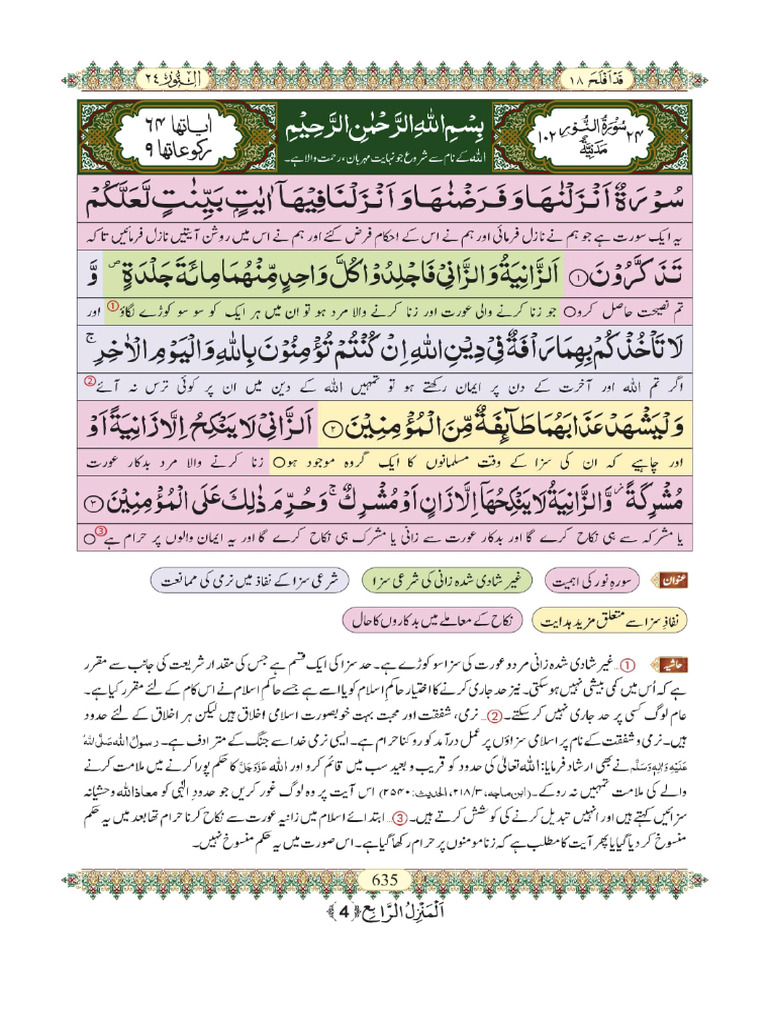 قَدْ اَفْلَحَ ١٨
اَلنُّوْر ٢٤
٢٤ سُوْرَةُ النُّوْرِ مَدَنِيَّةٌ ١٠٢
بِسْمِ اللهِ الرَّحْمٰنِ الرَّحِيْمِ
اللہ کے نام سے شروع جو نہایت مہربان، رحمت والا ہے۔
اٰیاتها ٦٤
رکوعاتها ٩
سُوْرَةٌ اَنْزَلْنٰهَا وَ فَرَضْنٰهَا وَ اَنْزَلْنَا فِيْهَاۤ اٰيٰتٍۭ بَيِّنٰتٍ لَّعَلَّكُمْ
یہ ایک سورت ہے جو ہم نے نازل فرمائی اور ہم نے اس کے احکام فرض کئے اور ہم نے اس میں روشن آیتیں نازل فرمائیں تاکہ
تَذَكَّرُوْنَ ① اَلزَّانِيَةُ وَ الزَّانِيْ فَاجْلِدُوْا كُلَّ وَاحِدٍ مِّنْهُمَا مِائَةَ جَلْدَةٍ ۪ وَّ
تم نصیحت حاصل کرو○ جو زنا کرنے والی عورت اور زنا کرنے والا مرد ہو تو ان میں ہر ایک کو سو سو کوڑے لگاؤ ① اور
لَا تَاْخُذْكُمْ بِهِمَا رَاْفَةٌ فِيْ دِيْنِ اللهِ اِنْ كُنْتُمْ تُؤْمِنُوْنَ بِاللهِ وَ الْيَوْمِ الْاٰخِرِ ۚ
اگر تم اللہ اور آخرت کے دن پر ایمان رکھتے ہو تو تمہیں اللہ کے دین میں ان پر کوئی ترس نہ آئے ②
وَ لْيَشْهَدْ عَذَابَهُمَا طَآىِٕفَةٌ مِّنَ الْمُؤْمِنِيْنَ ② اَلزَّانِيْ لَا يَنْكِحُ اِلَّا زَانِيَةً اَوْ
اور چاہیے کہ ان کی سزا کے وقت مسلمانوں کا ایک گروہ موجود ہو○ زنا کرنے والا مرد بدکار عورت
مُشْرِكَةً ؗ وَّ الزَّانِيَةُ لَا يَنْكِحُهَاۤ اِلَّا زَانٍ اَوْ مُشْرِكٌ ۚ وَ حُرِّمَ ذٰلِكَ عَلَى الْمُؤْمِنِيْنَ ③
یا مشرکہ سے ہی نکاح کرے گا اور بدکار عورت سے زانی یا مشرک ہی نکاح کرے گا اور یہ ایمان والوں پر حرام ہے ③○
عنوان سورہ نور کی اہمیت غیر شادی شدہ زانی کی شرعی سزا شرعی سزا کے نفاذ میں نرمی کی ممانعت
نفاذِ سزا سے متعلق مزید ہدایت نکاح کے معاملے میں بدکاروں کا حال
حاشیہ ①... غیر شادی شدہ زانی مرد و عورت کی سزا سو کوڑے ہے۔ حد سزا کی ایک قسم ہے جس کی مقدار شریعت کی جانب سے مقرر
ہے کہ اُس میں کمی بیشی نہیں ہو سکتی۔ نیز حد جاری کرنے کا اختیار حاکمِ اسلام کو یا اسے ہے جسے حاکمِ اسلام نے اس کام کے لئے مقرر کیا ہے۔
عام لوگ کسی پر حد جاری نہیں کر سکتے۔ ②... نرمی، شفقت اور محبت بہت خوبصورت اسلامی اخلاق ہیں لیکن ہر اخلاق کے لئے حدود
ہیں۔ نرمی و شفقت کے نام پر اسلامی سزاؤں پر عمل درآمد کو روکنا حرام ہے۔ ایسی نرمی خدا سے جنگ کے مترادف ہے۔ رسولُ اللہ صَلَّی اللہُ
عَلَیْہِ وَاٰلِہٖ وَسَلَّم نے بھی ارشاد فرمایا: اللہ تعالیٰ کی حدود کو قریب و بعید سب میں قائم کرو اور اللہ عَزَّوَجَلَّ کا حکم پورا کرنے میں ملامت کرنے
والے کی ملامت تمہیں نہ روکے۔ (ابن ماجہ، ۳/۲۱۸، الحدیث: ۲۵۴۰) اس آیت پر وہ لوگ غور کریں جو حدودِ الٰہی کو معاذ اللہ وحشیانہ
سزائیں کہتے ہیں اور انہیں تبدیل کرنے کی کوشش کرتے ہیں۔ ③... ابتدائے اسلام میں زانیہ عورت سے نکاح کرنا حرام تھا بعد میں یہ حکم
منسوخ کر دیا گیا یا پھر آیت کا مطلب ہے کہ زنا مومنوں پر حرام رکھا گیا ہے۔ اس صورت میں یہ حکم منسوخ نہیں۔
635
اَلْمَنْزِلُ الرَّابِع ﴿4﴾